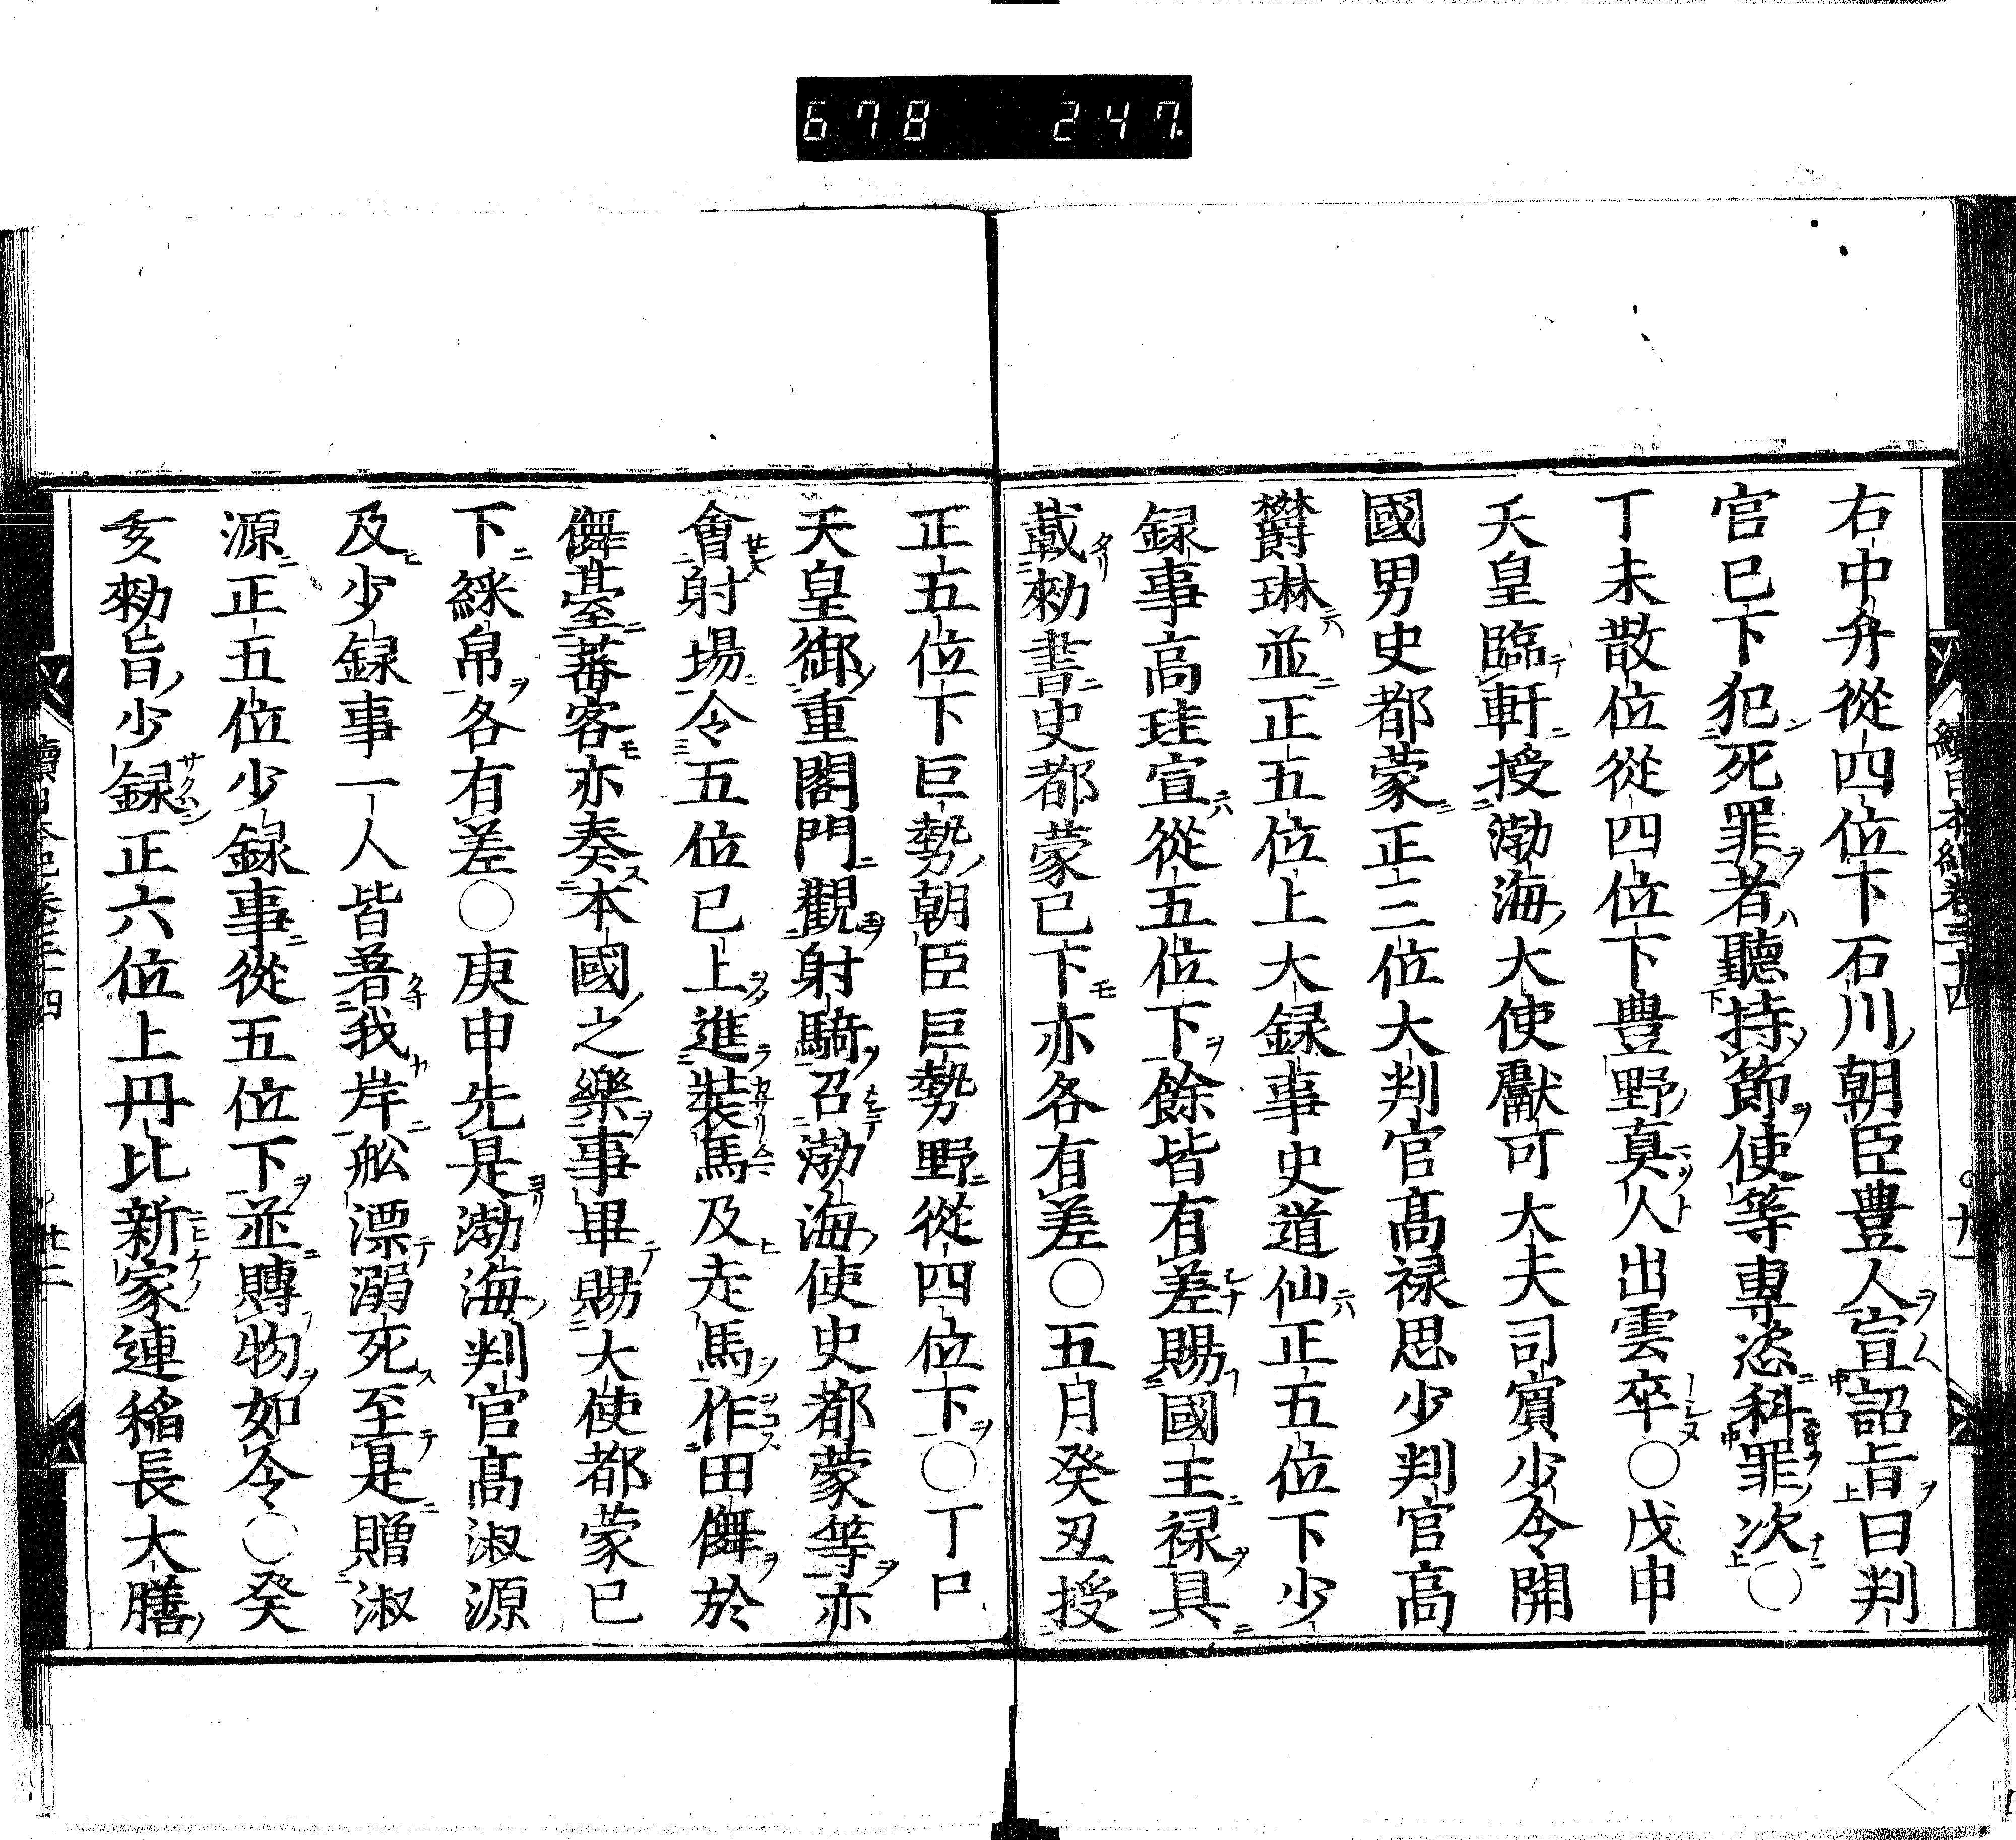 678 247.
右中弁從四位下石川朝臣豊人宣詔旨曰判
官已下犯死罪者聽持節使等專恣科罪次○
丁未散位從四位下豊野真人出雲卒○戊申
天皇臨軒授渤海大使獻可大夫司賓少令開
國男史都蒙正三位大判官髙禄思少判官高
欝琳並正五位上大録事史道仙正五位下少
録事高珪宣從五位下餘皆有差賜國王禄具
載勑書史都蒙已下亦各有差○五月癸丑授
正五位下巨勢朝臣巨勢野從四位下○丁巳
天皇御重閣門觀射騎召渤海使史都蒙等亦
會射場令五位已上進裝馬及走馬作田儛於
儛臺蕃客亦奏本國之樂事畢賜大使都蒙已
下綵帛各有差○庚申先是渤海判官髙淑源
及少録事一人皆著我岸舩漂溺死至是贈淑
源正五位少録事從五位下並賻物如令○癸
亥勑旨少録正六位上丹比新家連稲長大膳